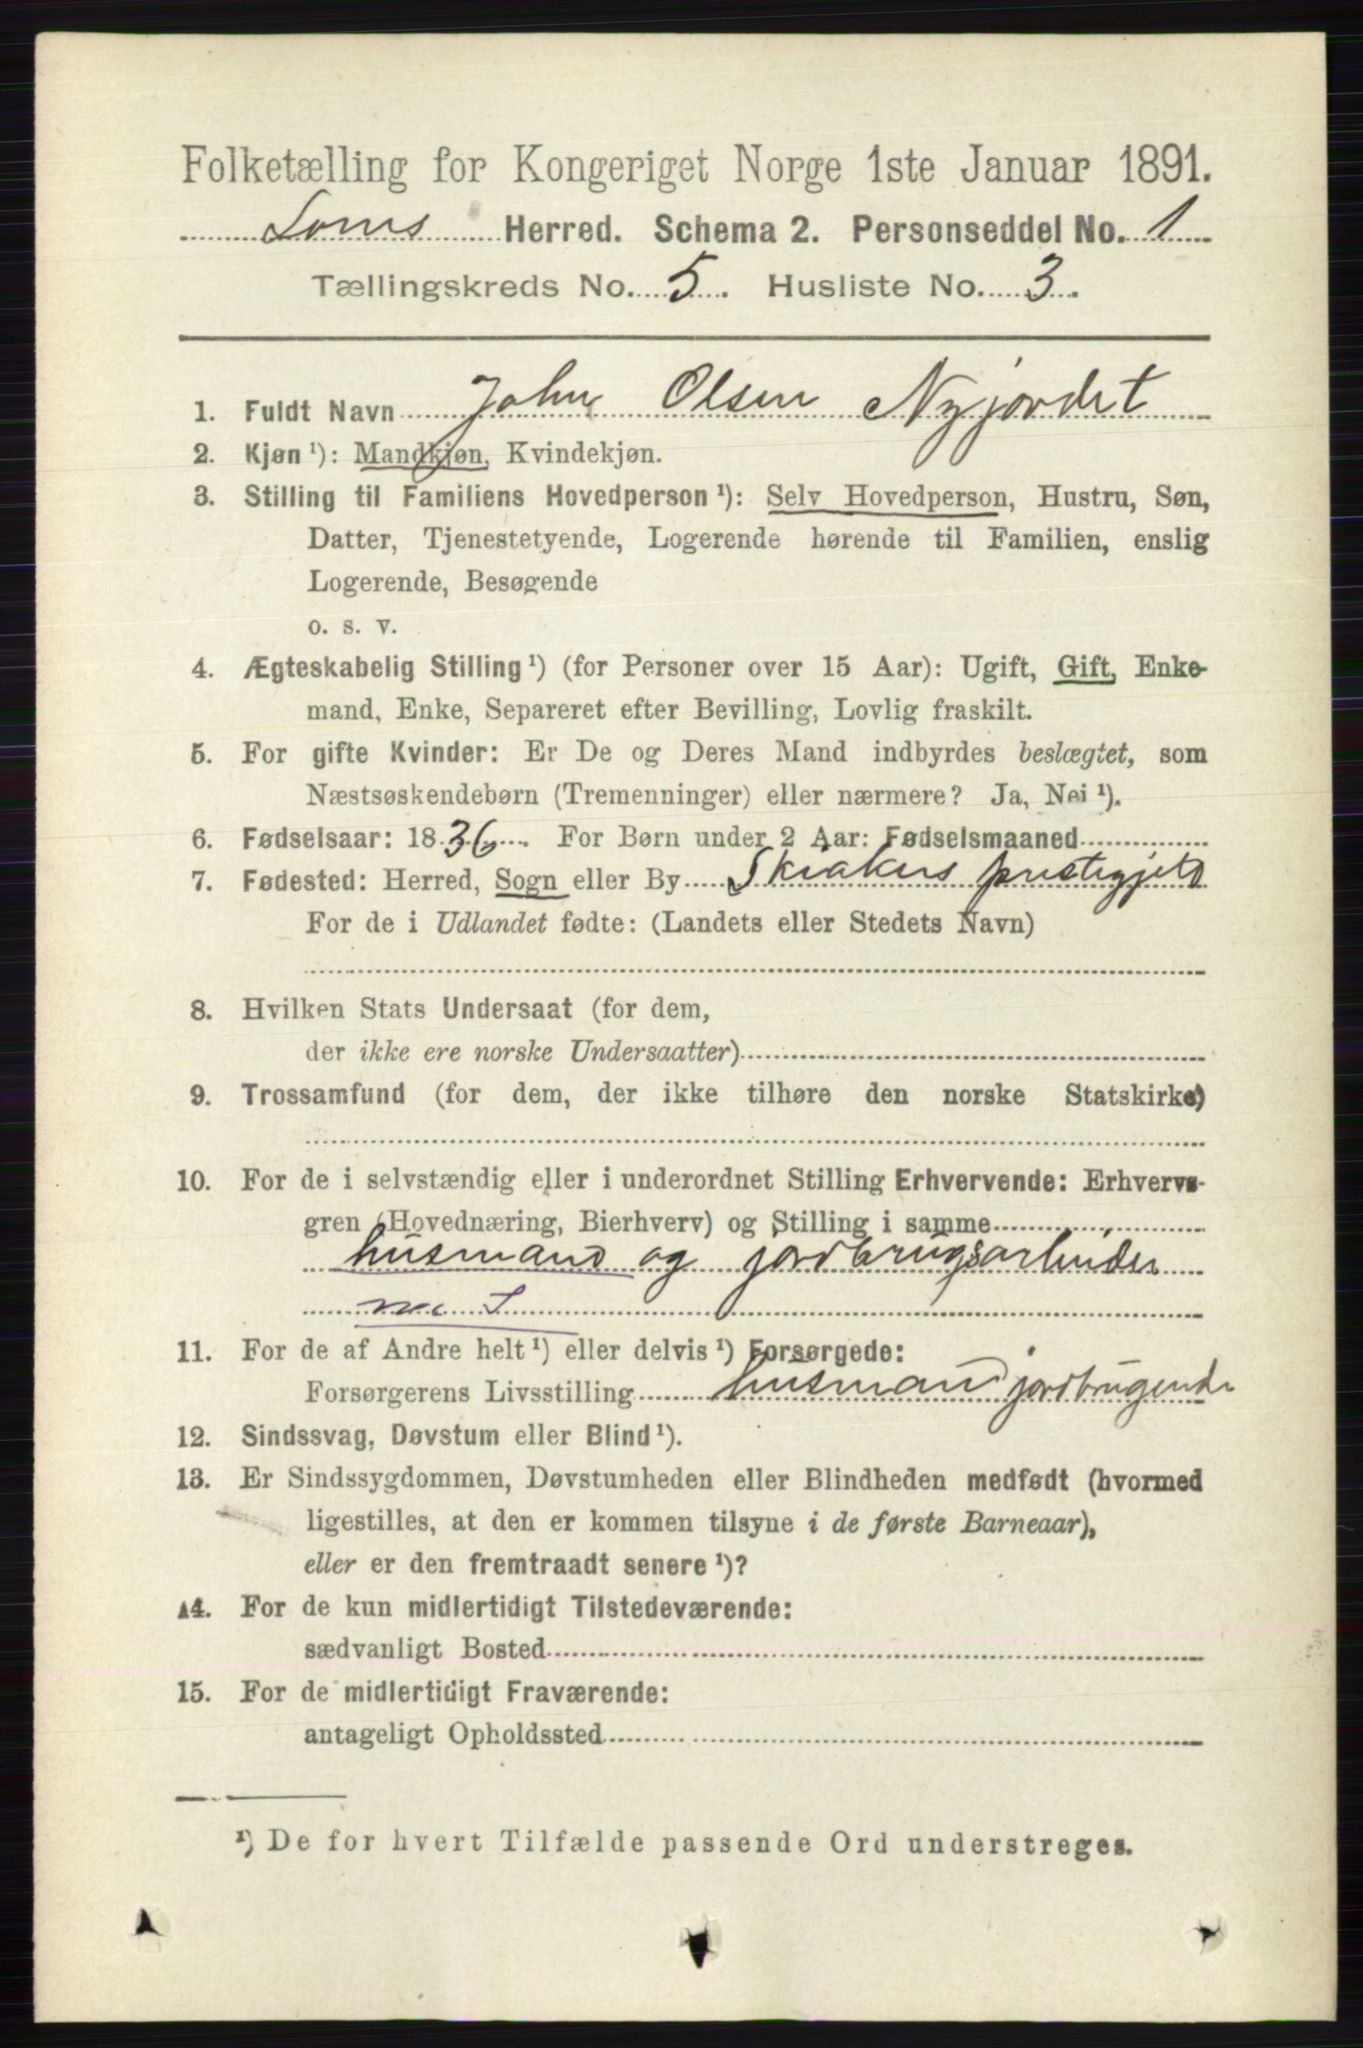 Folketælling for Kongeriget Norge 1ste Januar 1891.
Loms Herred. Schema 2. Personseddel No. 1
Tællingskreds No. 5. Husliste No. 3.
1. Fuldt Navn John Olsen Nyjordet
2. Kjøn ¹): Mandkjøn, Kvindekjøn.
3. Stilling til Familiens Hovedperson ¹): Selv Hovedperson, Hustru, Søn,
Datter, Tjenestetyende, Logerende hørende til Familien, enslig
Logerende, Besøgende
o. s. v.
4. Ægteskabelig Stilling ¹) (for Personer over 15 Aar): Ugift, Gift, Enke-
mand, Enke, Separeret efter Bevilling, Lovlig fraskilt.
5. For gifte Kvinder: Er De og Deres Mand indbyrdes beslægtet, som
Næstsøskendebørn (Tremenninger) eller nærmere? Ja, Nei ¹).
6. Fødselsaar: 1836. For Børn under 2 Aar: Fødselsmaaned
7. Fødested: Herred, Sogn eller By Skiakers prestegjeld
For de i Udlandet fødte: (Landets eller Stedets Navn)
8. Hvilken Stats Undersaat (for dem,
der ikke ere norske Undersaatter)
9. Trossamfund (for dem, der ikke tilhøre den norske Statskirke)
10. For de i selvstændig eller i underordnet Stilling Erhvervende: Erhvervs-
gren (Hovednæring, Bierhverv) og Stilling i samme
husmand og jordbrugsarbeider
m. S
11. For de af Andre helt ¹) eller delvis ¹) Forsørgede:
Forsørgerens Livsstilling husmand jordbrugende
12. Sindssvag, Døvstum eller Blind ¹).
13. Er Sindssygdommen, Døvstumheden eller Blindheden medfødt (hvormed
ligestilles, at den er kommen tilsyne i de første Barneaar),
eller er den fremtraadt senere ¹)?
14. For de kun midlertidigt Tilstedeværende:
sædvanligt Bosted
15. For de midlertidigt Fraværende:
antageligt Opholdssted
¹) De for hvert Tilfælde passende Ord understreges.